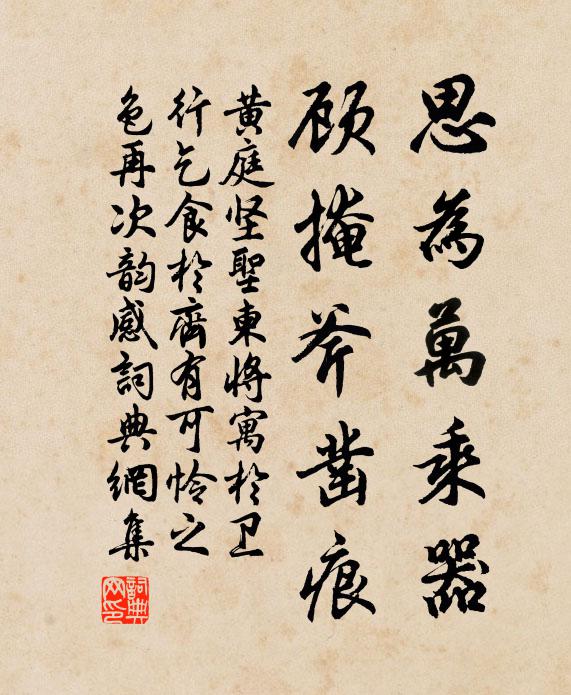 思為萬乘器
顾掩斧凿痕
黄庭坚聖東将寓於卫
行乞食於齊有可怜之
色再次韵感詞典網集
詞典
网印